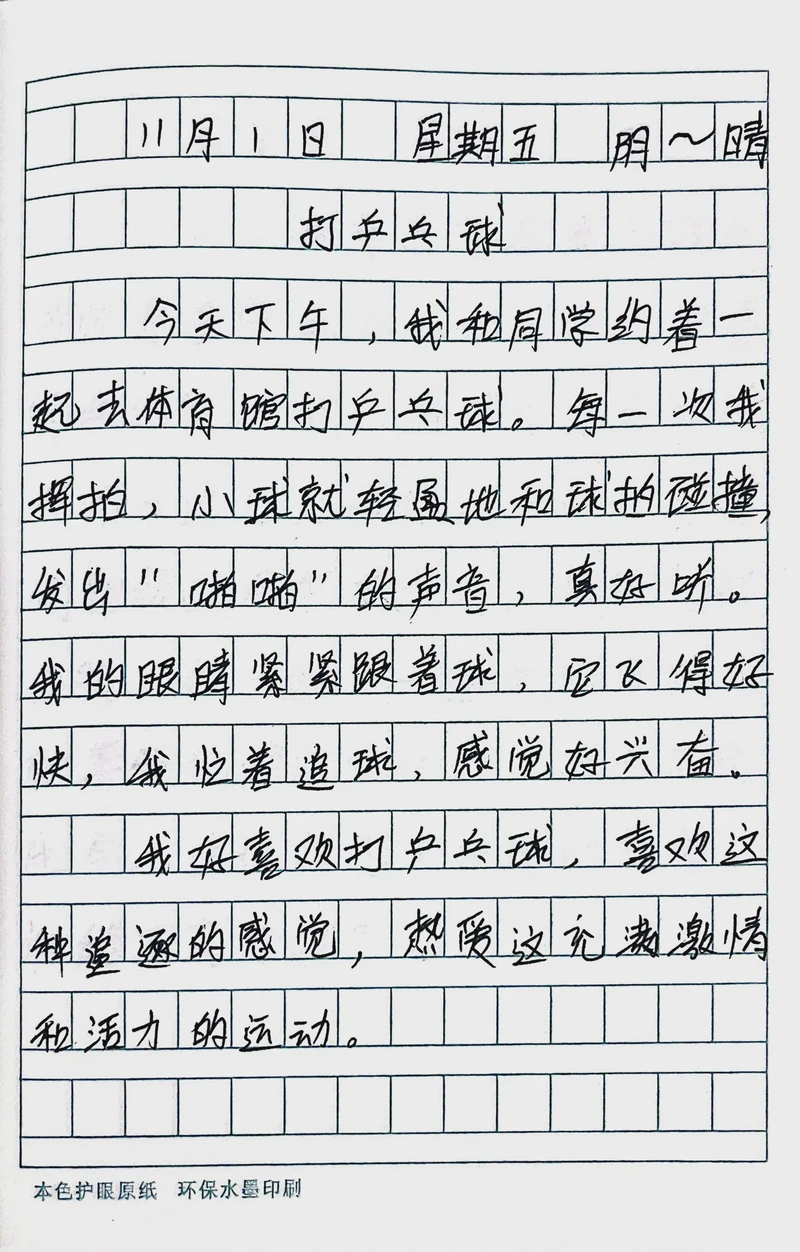 11月1日 星期五 阴～晴
打乒乓球
今天下午，我和同学约着一
起去体育馆打乒乓球。每一次我
挥拍，小球就轻盈地和球拍碰撞，
发出"啪啪"的声音，真好听。
我的眼睛紧紧跟着球，它飞得好
快，我忙着追球，感觉好兴奋。
我好喜欢打乒乓球，喜欢这
种追逐的感觉，热爱这充满激情
和活力的运动。
本色护眼原纸 环保水墨印刷